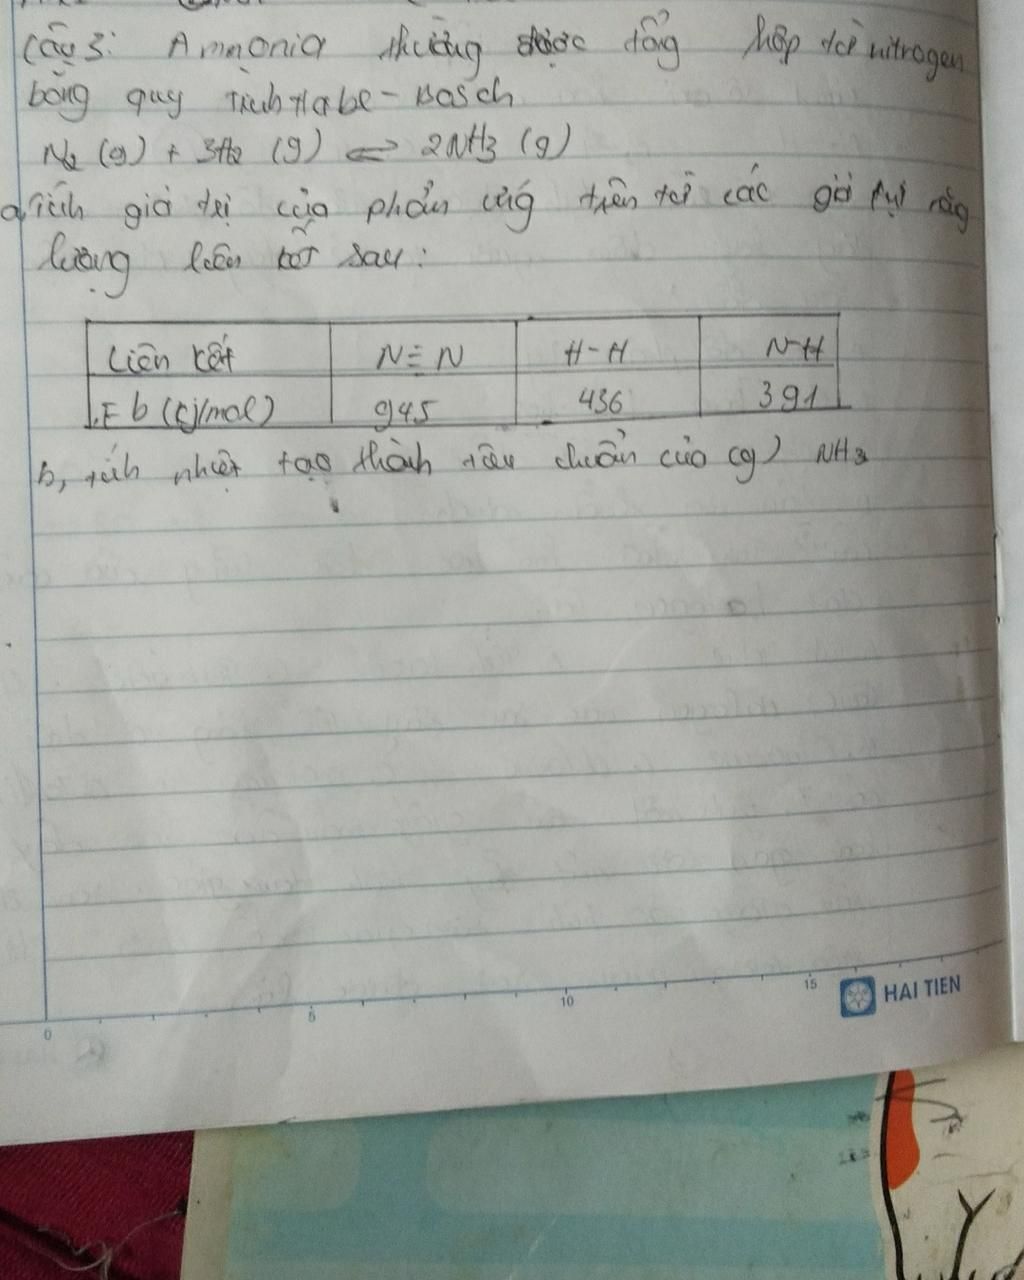 Câu 3: Ammonia thường được tổng hợp từ nitrogen
bằng quy trình Habe - Bosch
N2 (g) + 3H2 (g) ⇌ 2NH3 (g)
a, Tính giá trị của phản ứng trên từ các giá trị năng
lượng liên kết sau:
Liên kết N≡N H-H N-H
Eb (kj/mol) 945 436 391
b, tính nhiệt tạo thành tiêu chuẩn của (g) NH3
0 5 10 15 HAI TIEN